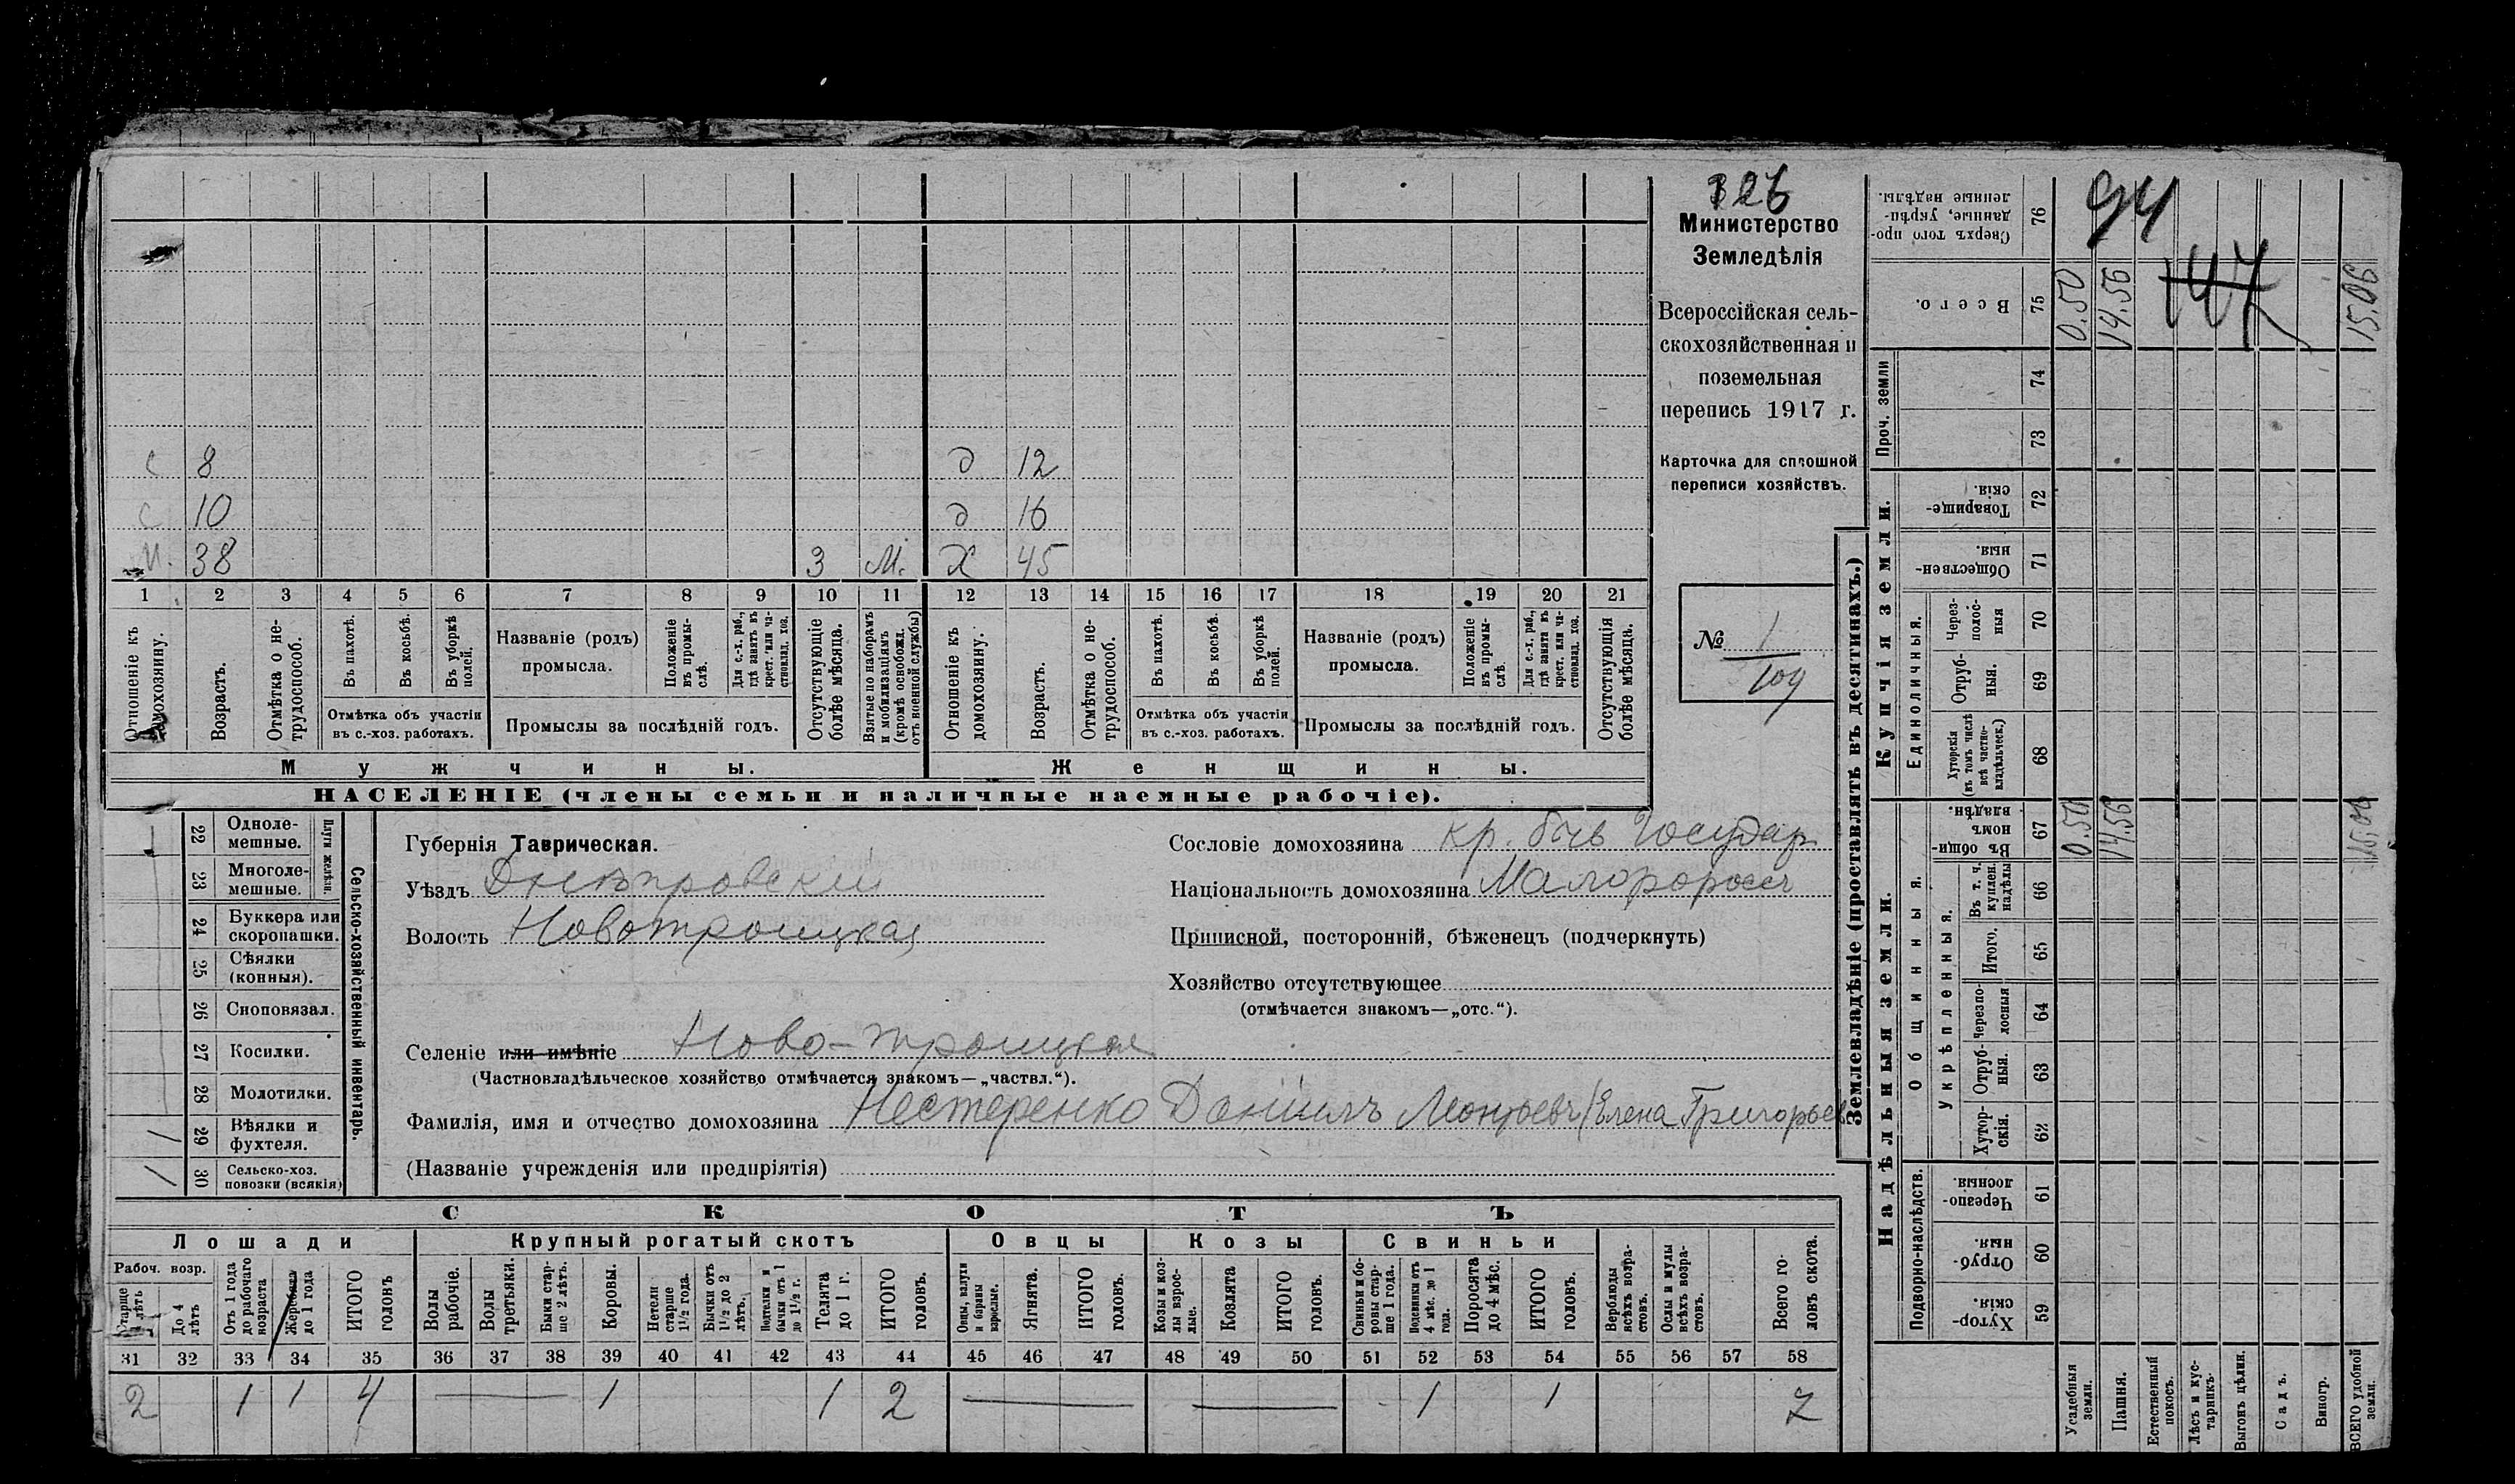 326
Министерство
Земледѣлія
Всероссійская сель-
скохозяйственная и
поземельная
перепись 1917 г.
Карточка для сплошной
переписи хозяйствъ.
№ 1
109
с 8 д 12
с 10 д 16
38 З М. Х 45
1 2 3 4 5 6 7 8 9 10 11 12 13 14 15 16 17 18 19 20 21
Отношеніе къ домохозяину.
Возрастъ.
Отмѣтка о не-трудоспособ.
Въ пахотѣ.
Въ косьбѣ.
Въ уборкѣ полей.
Отмѣтка объ участіи
въ с.-хоз. работахъ.
Названіе (родъ)
промысла.
Положеніе въ промы-слѣ.
Для с.-х. раб., гдѣ занятъ въ крест. или ча-стновлад. хоз.
Промыслы за послѣдній годъ.
Отсутствующіе болѣе мѣсяца.
Взятые по наборамъ и мобилизаціямъ (кромѣ освобожд. отъ военной службы)
Отношеніе къ домохозяину.
Возрастъ.
Отмѣтка о не-трудоспособ.
Въ пахотѣ.
Въ косьбѣ.
Въ уборкѣ полей.
Отмѣтка объ участіи
въ с.-хоз. работахъ.
Названіе (родъ)
промысла.
Положеніе въ промы-слѣ.
Для с.-х. раб., гдѣ занята въ крест. или ча-стновлад. хоз.
Промыслы за послѣдній годъ.
Отсутствующія болѣе мѣсяца.
Мужчины. Женщины.
НАСЕЛЕНІЕ (члены семьи и наличные наемные рабочіе).
Сельско-хозяйственный инвентарь.
Плуги желѣзн.
22 Одноле-мешные.
23 Многоле-мешные.
24 Буккера или скоропашки.
25 Сѣялки (конныя).
26 Сноповязал.
27 Косилки.
28 Молотилки.
29 Вѣялки и фухтеля. 1
30 Сельско-хоз. повозки (всякія) 1
Губернія Таврическая.
Уѣздъ Днѣпровскій
Волость Новотроицкая
Сословіе домохозяина кр. бывъ Государ
Національность домохозяина Малоросс
Приписной, посторонній, бѣженецъ (подчеркнуть)
Хозяйство отсутствующее
(отмѣчается знакомъ—„отс.“).
Селеніе или имѣніе Ново-Троицкая
(Частновладѣльческое хозяйство отмѣчается знакомъ—„частвл.“).
Фамилія, имя и отчество домохозяина Нестеренко Даніилъ Леонтьевъ/Елена Григорьев
(Названіе учрежденія или предпріятія)
СКОТЪ
Лошади Крупный рогатый скотъ Овцы Козы Свиньи
Рабоч. возр.
Старше 4 лѣтъ
До 4 лѣтъ
Отъ 1 года до рабочаго возраста
Жеребята до 1 года
ИТОГО головъ
Волы рабочіе.
Волы третьяки.
Быки стар-ше 2 лѣтъ.
Коровы.
Нетели старше 1½ года.
Бычки отъ 1½ до 2 лѣтъ.
Подтелки и бычки отъ 1 до 1½ г.
Телята до 1 г.
ИТОГО головъ.
Овцы, валухи и бараны взрослые.
Ягнята.
ИТОГО головъ.
Козы и коз-лы взрос-лые.
Козлята
ИТОГО головъ.
Свиньи и бо-ровы стар-ше 1 года.
Подсвинки отъ 4 мѣс. до 1 года.
Поросята до 4 мѣс.
ИТОГО головъ.
Верблюды всѣхъ возра-стовъ.
Ослы и мулы всѣхъ возра-стовъ.
Всего го-ловъ скота.
31 32 33 34 35 36 37 38 39 40 41 42 43 44 45 46 47 48 49 50 51 52 53 54 55 56 57 58
2 1 1 4 — 1 1 2 — — 1 1 7
Землевладѣніе (проставлять въ десятинахъ.)
Надѣльныя земли. Купчія земли. Проч. земли
Подворно-наслѣдств. Общинныя. Единоличныя.
Укрѣпленныя.
59 Хутор-скія.
60 Отруб-ныя.
61 Черезпо-лосныя.
62 Хутор-скія.
63 Отруб-ныя.
64 Черезпо-лосныя
65 Итого.
66 Въ т. ч. куплен. надѣлы
67 Въ общи-номъ владѣн.
68 Хуторскія (въ томъ числѣ всѣ частно-владѣльческ.)
69 Отруб-ныя.
70 Через-полос-ныя
71 Обществен-ныя.
72 Товарище-скія.
73
74
75 Всего.
76 Сверхъ того про-данные, укрѣп-ленные надѣлы.
94
147
Усадебныя земли. 0.50 0.50
Пашня. 14.56 14.56
Естественный покосъ.
Лѣсъ и кус-тарникъ.
Выгонъ цѣлин.
Садъ.
Виногр.
ВСЕГО удобной земли. 15.06 15.06